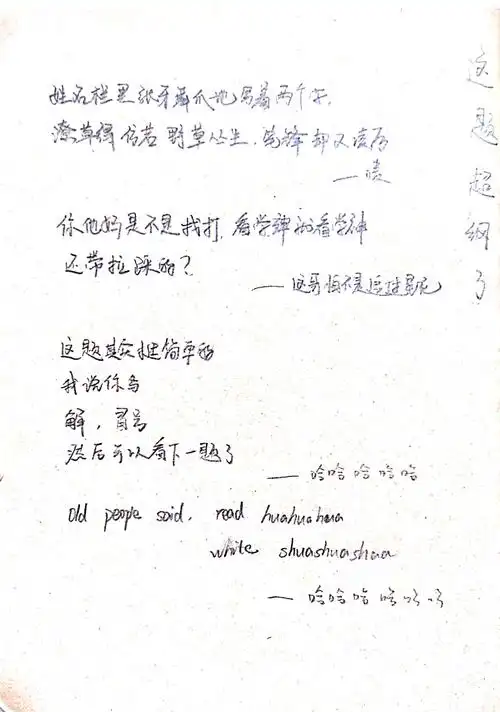 姓名栏里张牙舞爪地写着两个字,
潦草得仿若野草丛生,笔锋却又凌厉
——啧
你他妈是不是找打,看学神就看学神
还带拉踩的?
——这哥怕不是后进黑尼
这题其实挺简单的
我说你写
解,冒号
然后可以看下一题了
——哈哈哈哈哈
Old people said, read huahuahua
white shuashuashua
——哈哈哈哈哈哈
这题超纲了